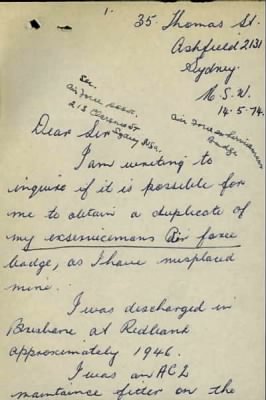 1.
35 Thomas St.
Ashfield 2131
Sydney.
N.S.W.
14-5-74.
Sec.
Air Force Assn.
213 Clarence St
Sydney
Air Force
Badge
Dear Sir
I am writing to
inquire if it is possible for
me to obtain a duplicate of
my exservicemans Air force
badge, as I have misplaced
mine.
I was discharged in
Brisbane at Redbank
approximately 1946.
I was an AC2
maintaince fitter on the